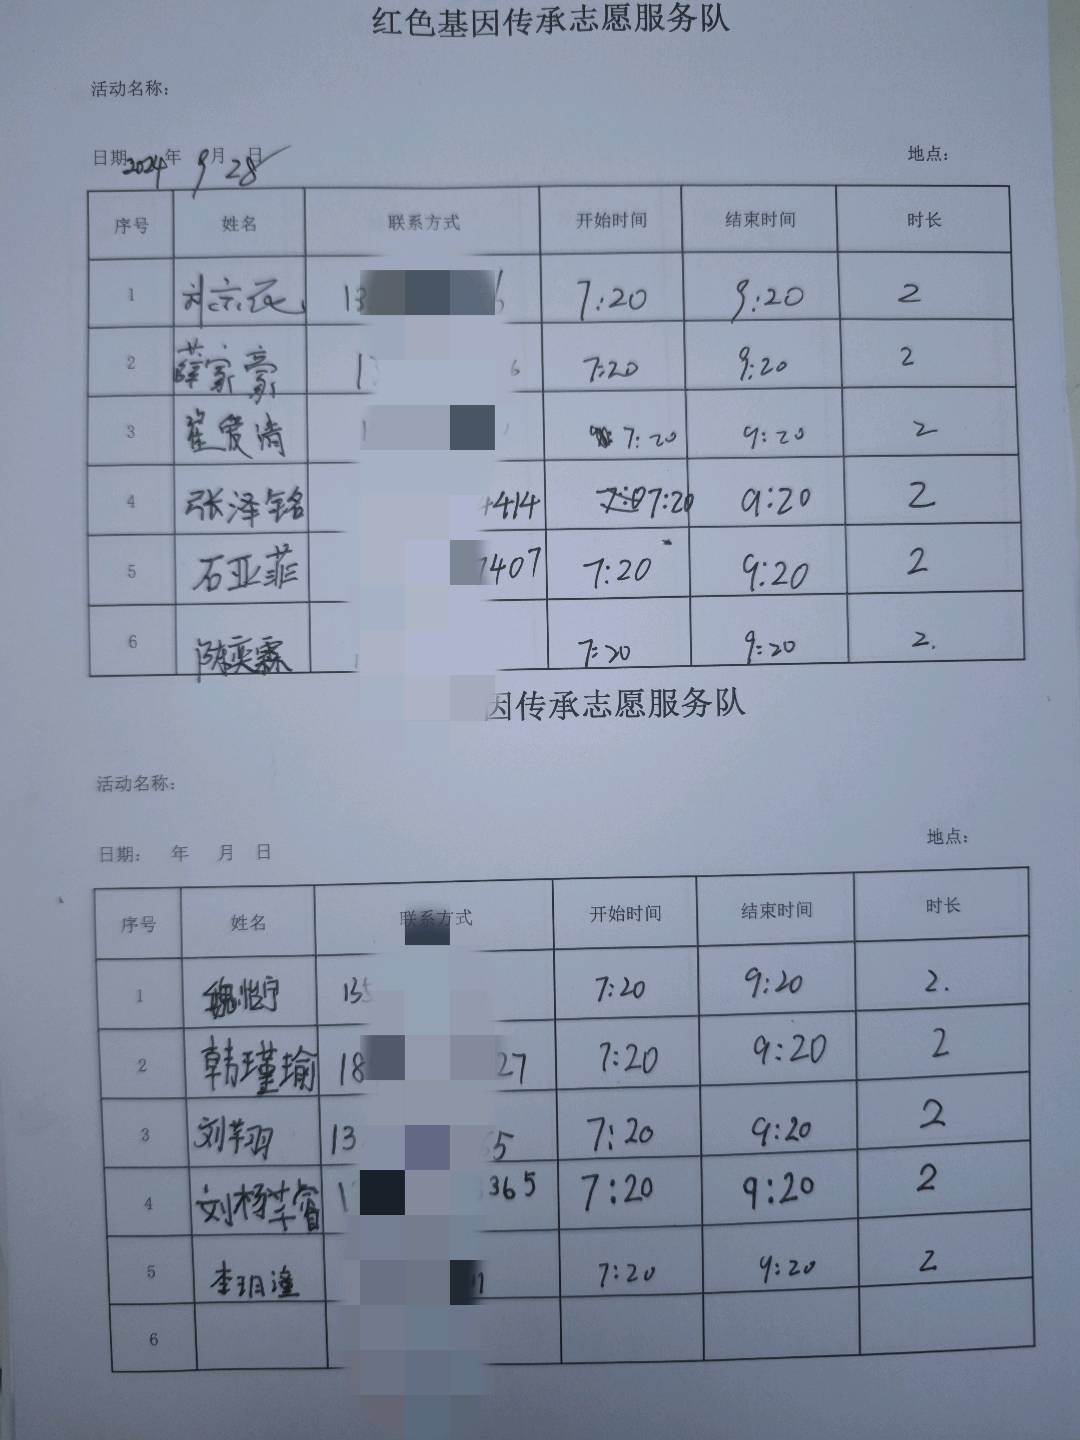 红色基因传承志愿服务队
活动名称：
日期 2024年 9月28日 地点：
序号 姓名 联系方式 开始时间 结束时间 时长
1 13 6 7:20 9:20 2
2 薛家豪 1 6 7:20 9:20 2
3 翟爱清 1 7:20 9:20 2
4 张泽铭 4414 7:20 9:20 2
5 石亚菲 7407 7:20 9:20 2
6 陈奕霖 7:20 9:20 2.
因传承志愿服务队
活动名称：
日期： 年 月 日 地点：
序号 姓名 联系方式 开始时间 结束时间 时长
1 魏怡宁 135 7:20 9:20 2.
2 韩瑾瑜 18 27 7:20 9:20 2
3 刘芊羽 13 65 7:20 9:20 2
4 刘杨芊睿 1 365 7:20 9:20 2
5 李玥潼 7:20 9:20 2
6